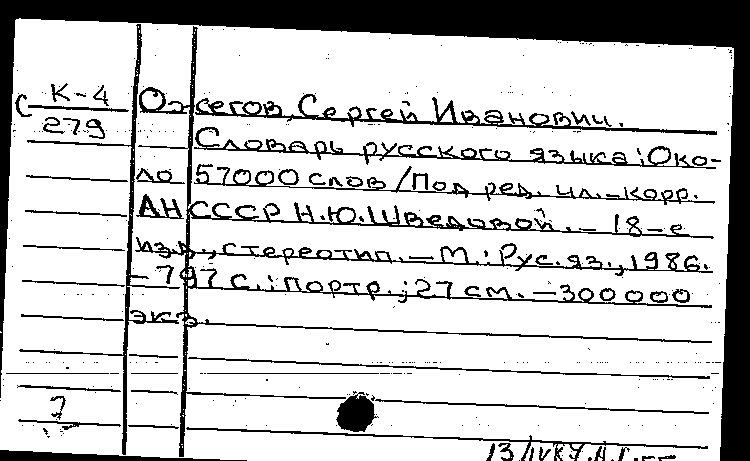 С К-4
279
Ожегов, Сергей Иванович.
Словарь русского языка: Око-
ло 57000 слов / Под ред. чл.-корр.
АН СССР Н.Ю.Шведовой. - 18-е
изд., стереотип. - М.: Рус. яз., 1986.
- 797 с.: портр.; 27 см. - 300000
экз.
7